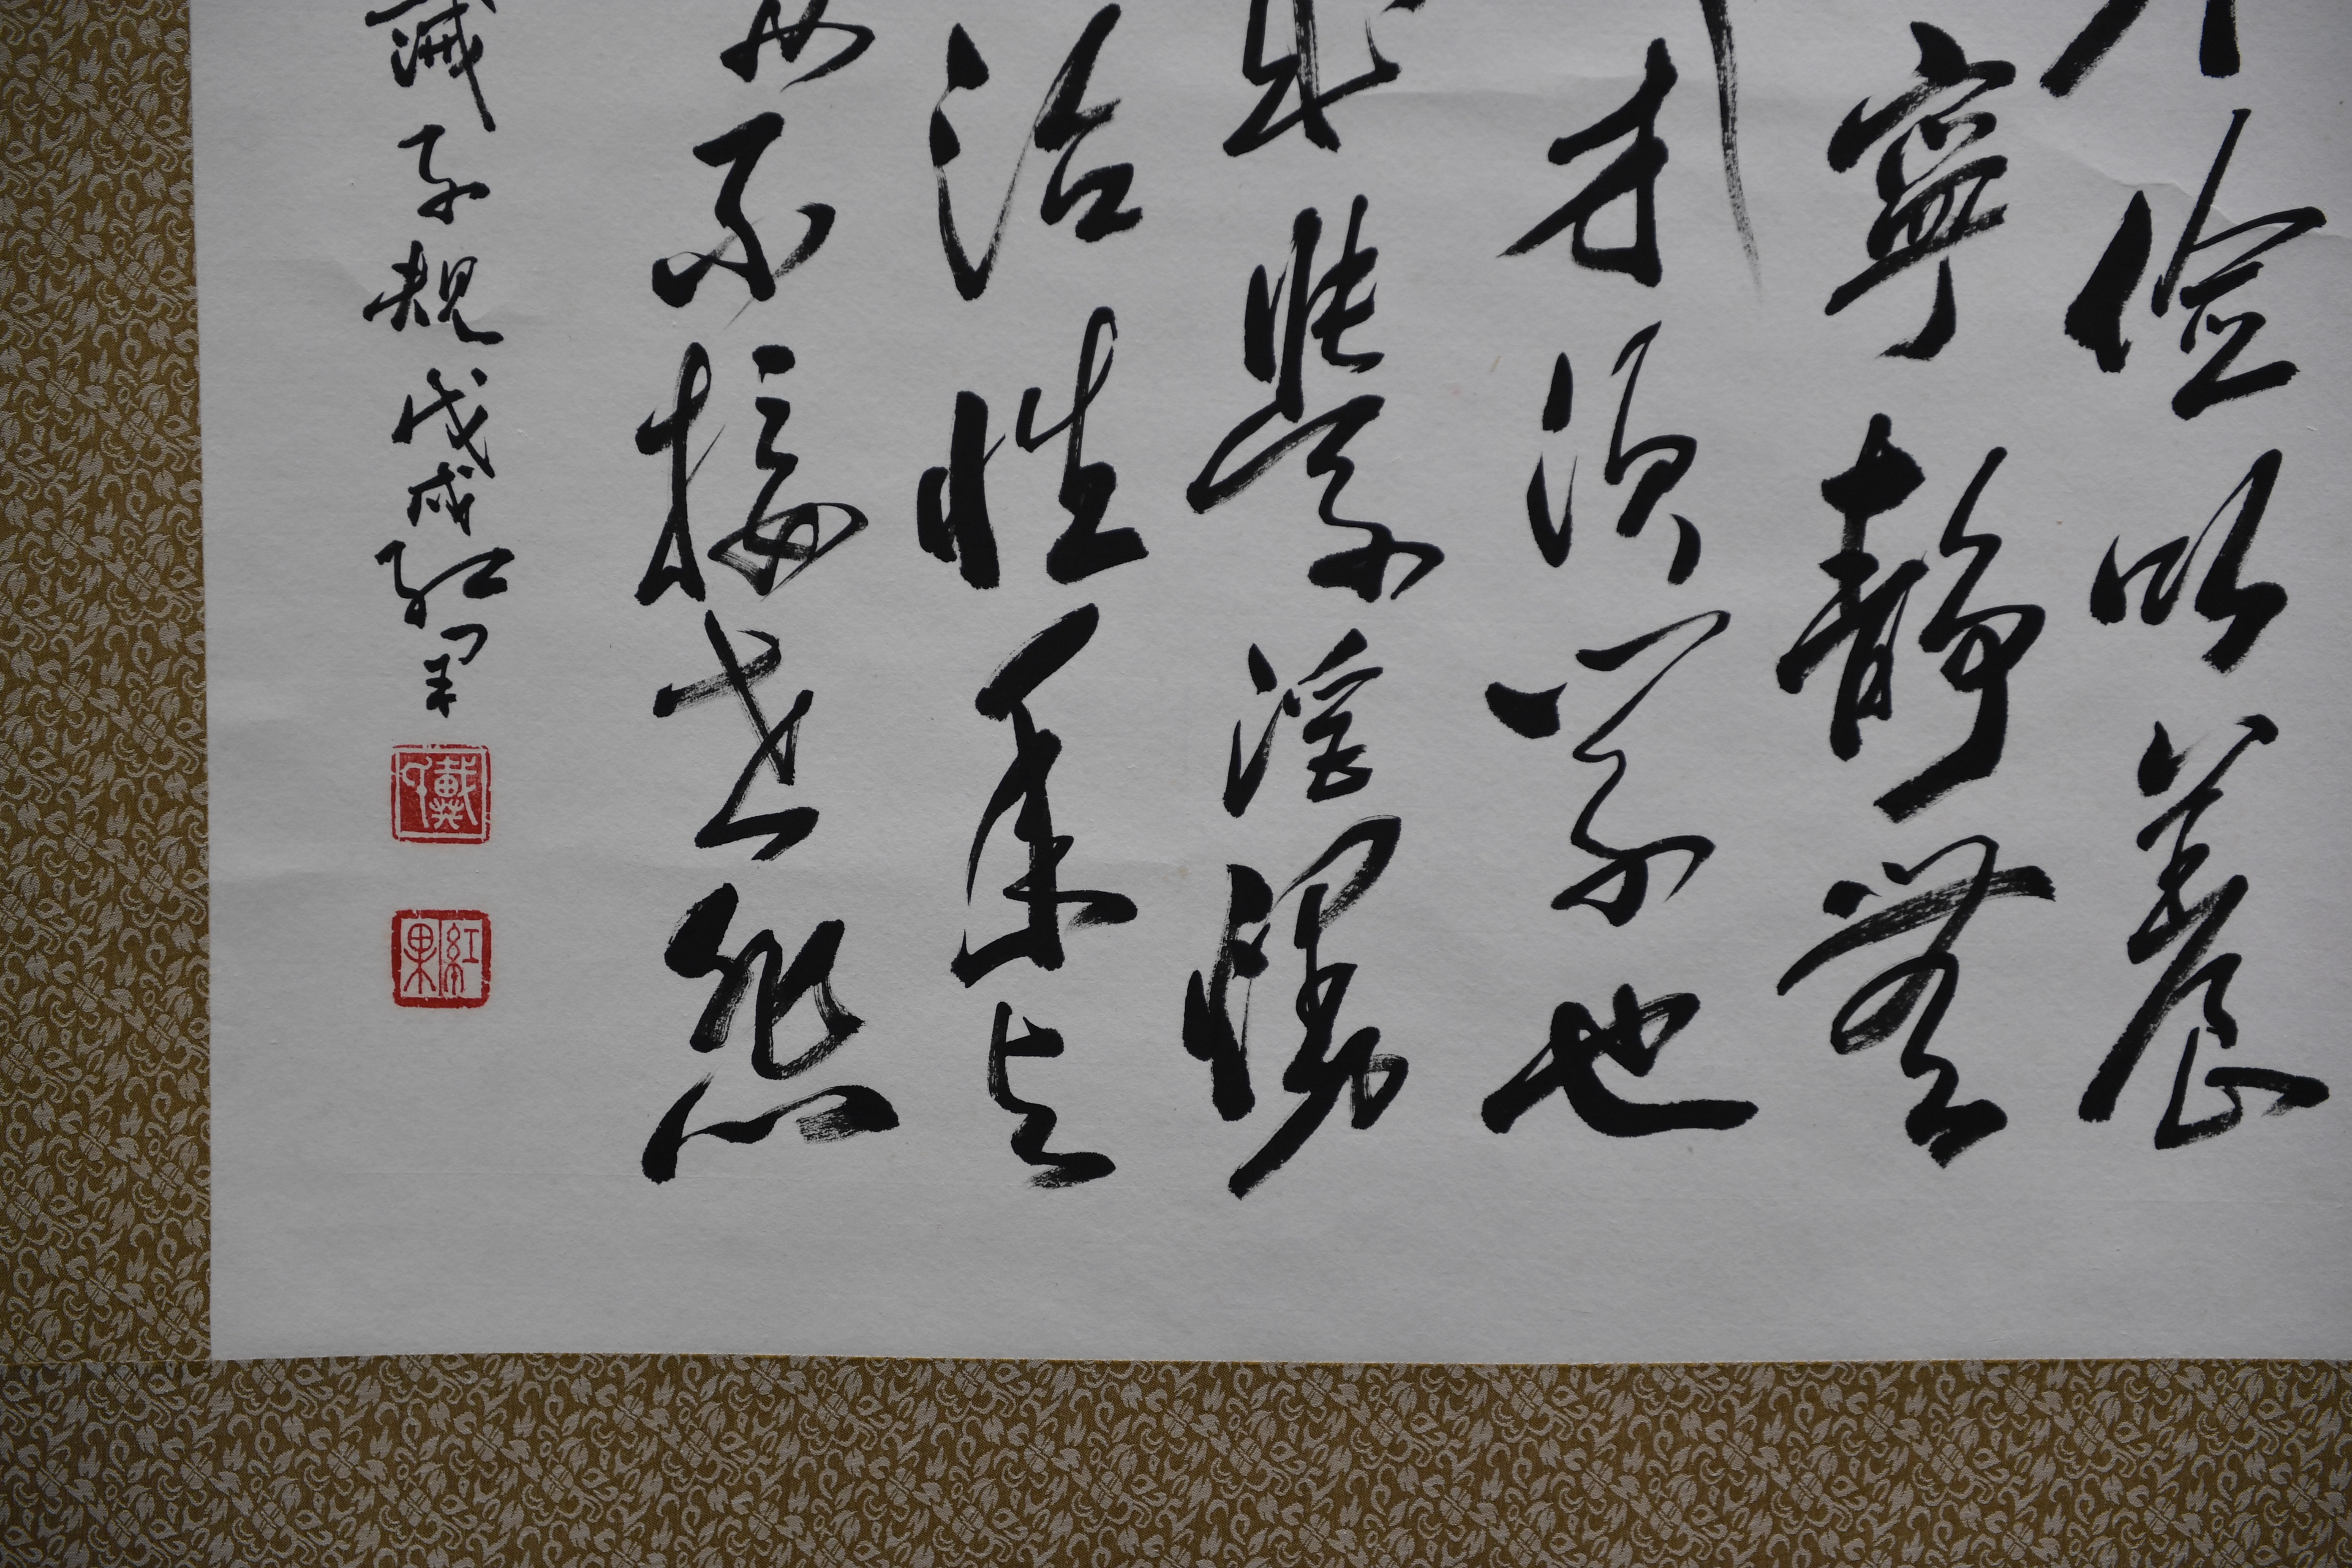 儉以養
寧靜無
才須學也
學淫慢
治性年與
不接世悲
誡子規戊戌紅果
戴印
紅果